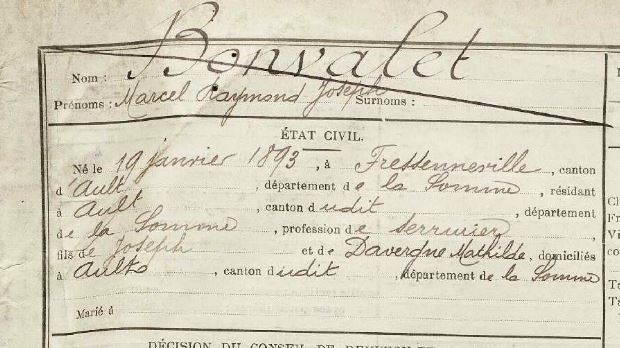 Bonvalet
Nom :
Prénoms : Marcel Raymond Joseph Surnoms :
ÉTAT CIVIL.
Né le 19 janvier 1893, à Fressenneville, canton
d'Ault, département de la Somme, résidant
à Ault, canton dudit, département
de la Somme, profession de serrurier,
fils de Joseph et de Davergne Mathilde, domiciliés
à Ault, canton dudit, département de la Somme
Marié à
DÉCISION DU CONSEIL DE